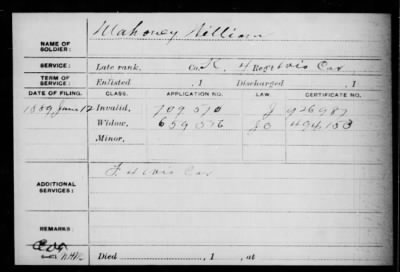 NAME OF SOLDIER: Mahoney William
SERVICE: Late rank, Co. K, 4 Reg't Wis Cav
TERM OF SERVICE: Enlisted , 1 Discharged , 1
DATE OF FILING. CLASS. APPLICATION NO. LAW. CERTIFICATE NO.
1889 June 12 Invalid, 709 570 J 926987
Widow, 659 576 494,153
Minor,
ADDITIONAL SERVICES: F 4 Wis Cav
REMARKS:
Died , 1 , at